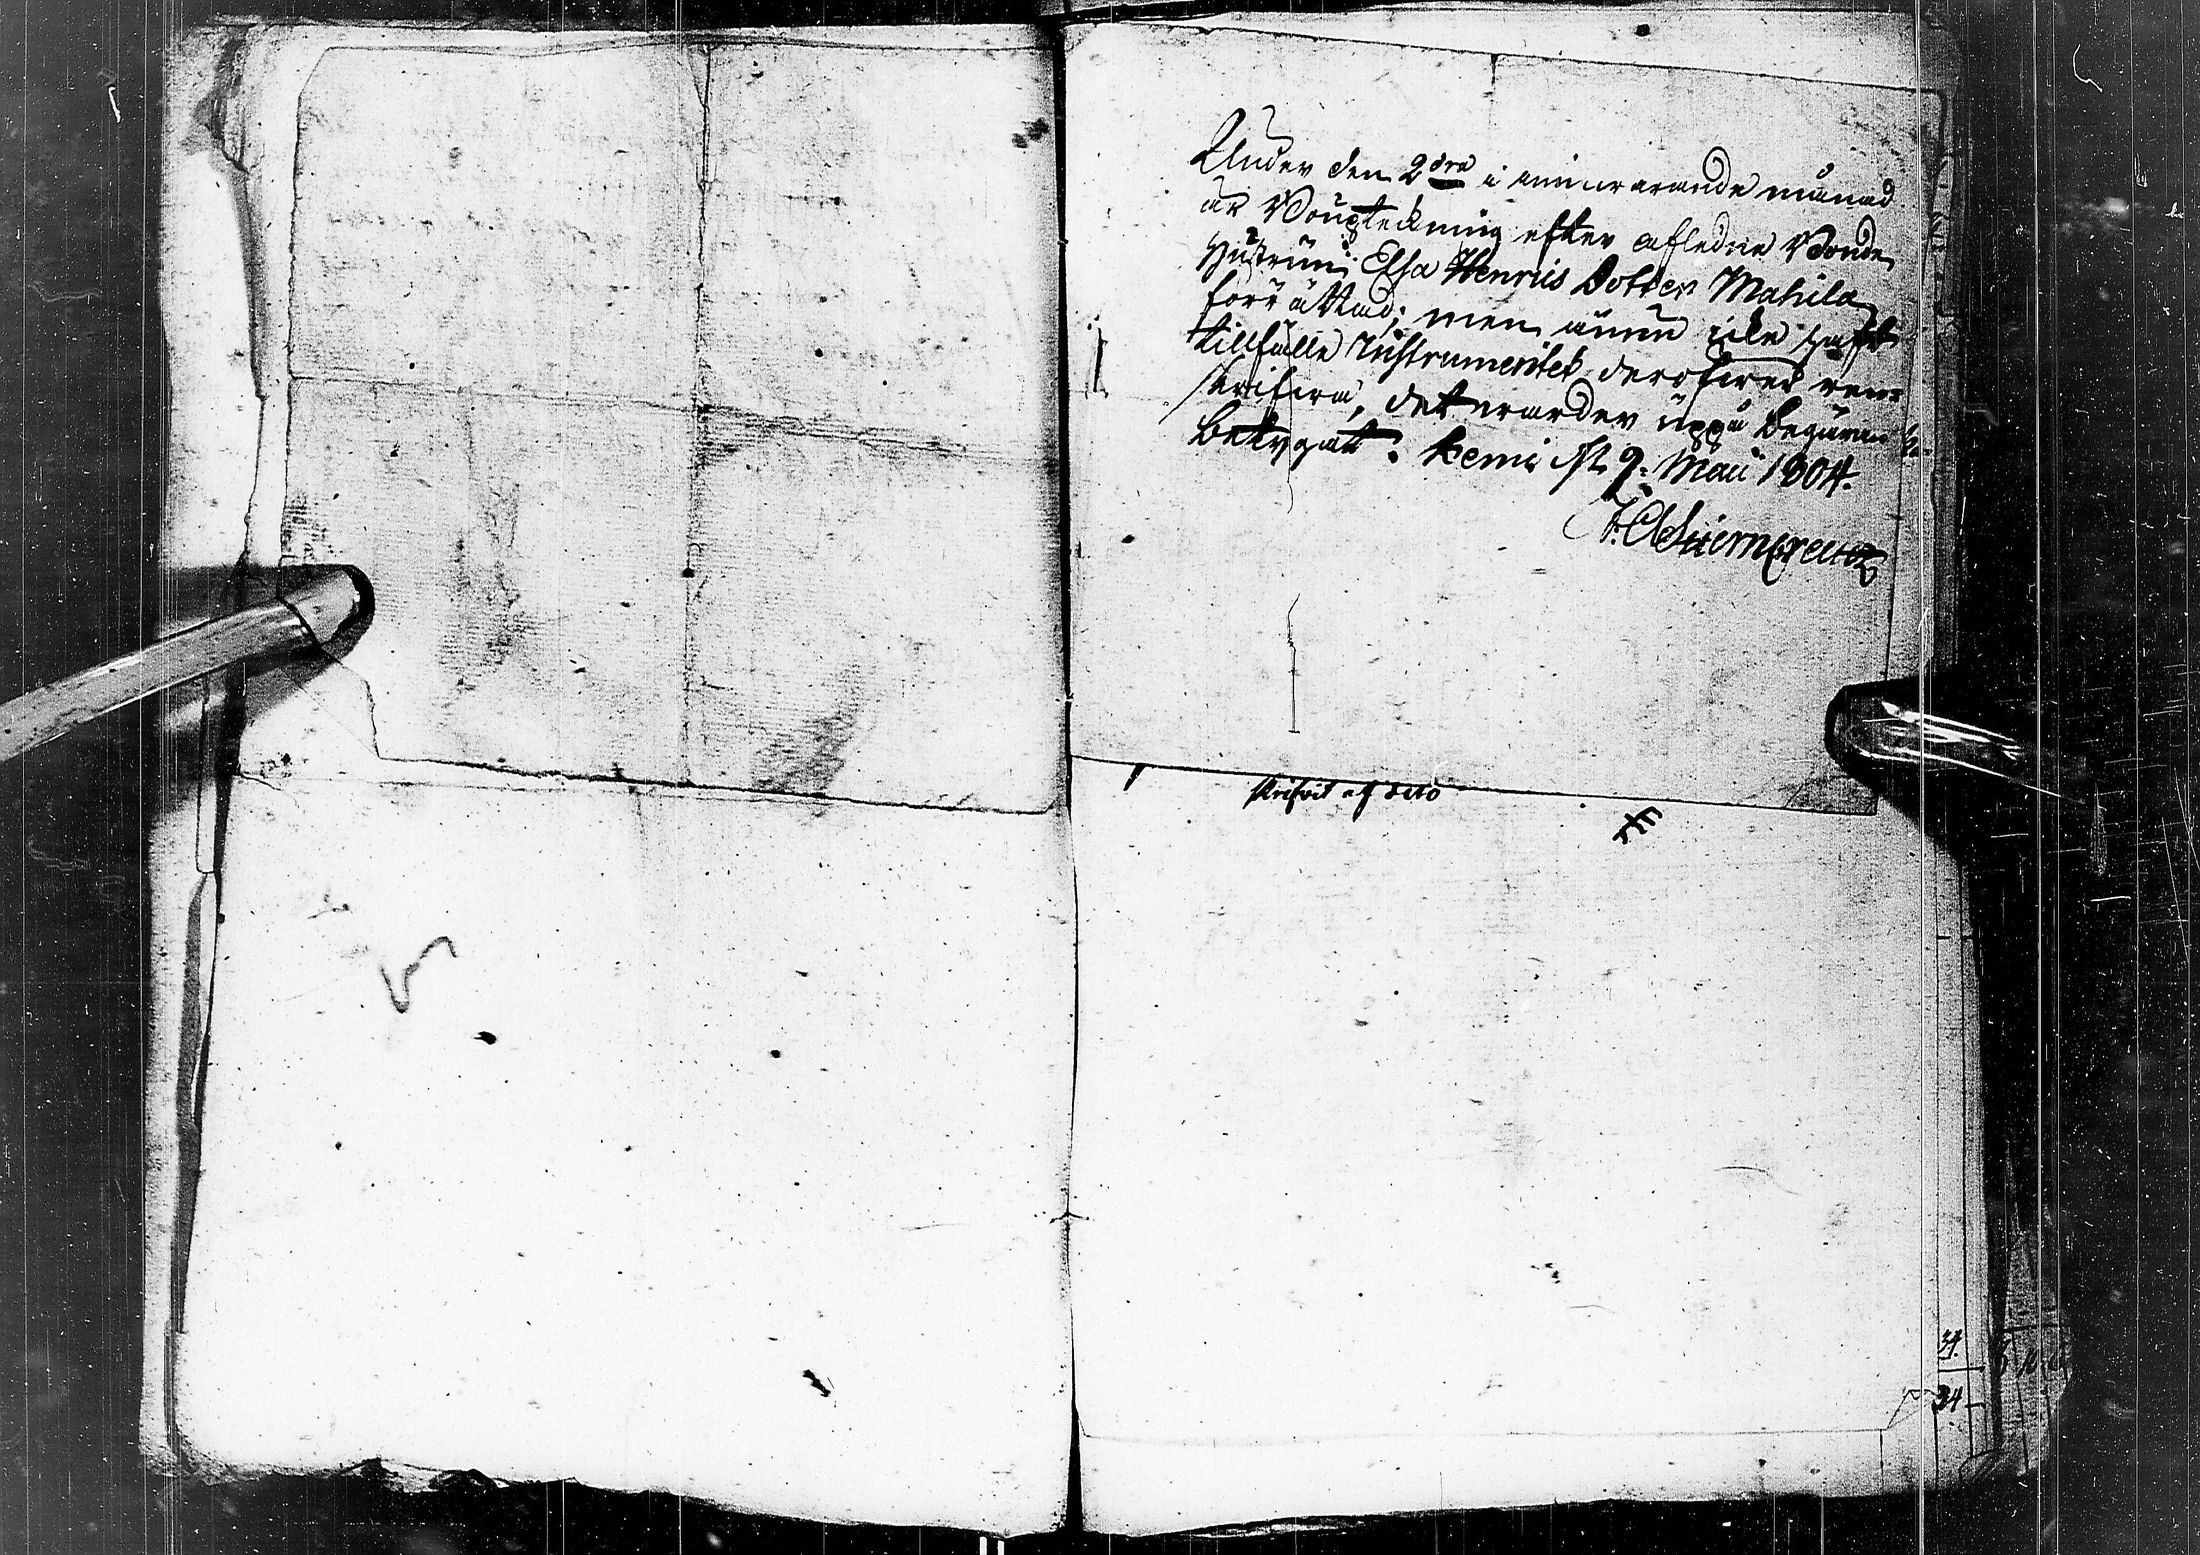 Under den 2dra i innewarande månad
är Bouptekning efter afledne Bonde
Hustrun Elsa Henrics Dotter Mahila
förrättad; men ännu icke haft
tillfälle Instrumentet deröfwer ren-
skrifwa, det warder uppå begäran
betygatt. Kemi d. 9. Maii 1804.
StiernCreutz
skrifvit af
34
34